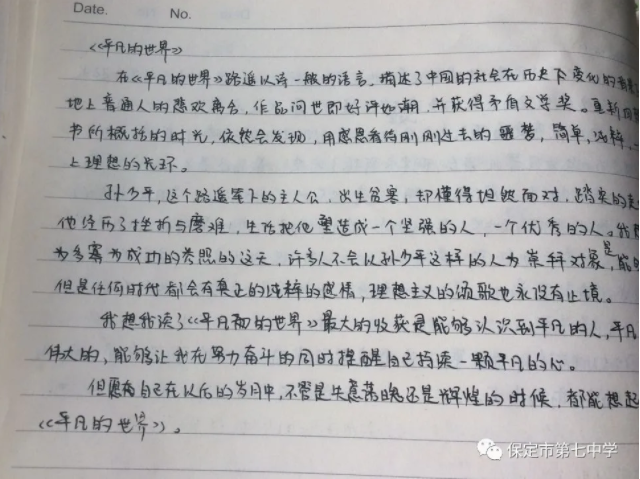 Date.
No.
《平凡的世界》
在《平凡的世界》路遥以诗一般的语言，描述了中国的社会在历史下变化的
地上普通人的悲欢离合，作品问世即好评如潮，并获得矛盾文学奖。重新
书所概括的时光，依然会发现，用感恩看待刚刚过去的噩梦，简单，纯粹，
上理想的光环。
孙少平，这个路遥笔下的主人公，出生贫寒，却懂得坦然面对，踏实的走
他经历了挫折与磨难，生活把他塑造成一个坚强的人，一个优秀的人。
为多寡为成功的参照的这天，许多人不会以孙少平这样的人为崇拜对象是，
但是任何时代都会有真正的纯粹的感情，理想主义的颂歌也永没有止境。
我想我读了《平凡的世界》最大的收获是能够认识到平凡的人，平凡
伟大的，能够让我在努力奋斗的同时提醒自己持续一颗平凡的心。
但愿看自己在以后的岁月中，不管是失意落魄还是辉煌的时候，都能想起
《平凡的世界》。
保定市第七中学